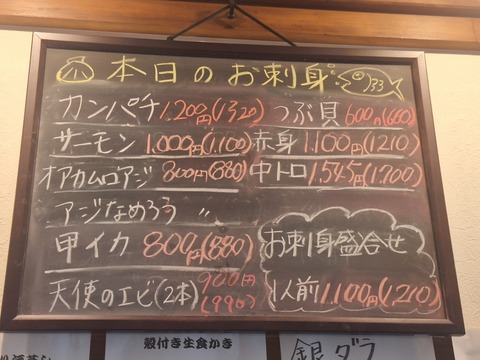 本日のお刺身
カンパチ 1.200円(1320)
サーモン 1.000円(1.100)
オアカムロアジ 800円(880)
アジなめろう 〃
甲イカ 800円(880)
天使のエビ(2本) 900円(990)
つぶ貝 600円(660)
赤身 1.100円(1210)
中トロ 1.545円(1.700)
お刺身盛合せ
1人前 1.100円(1,210)
殻付き生食かき
銀ダラ